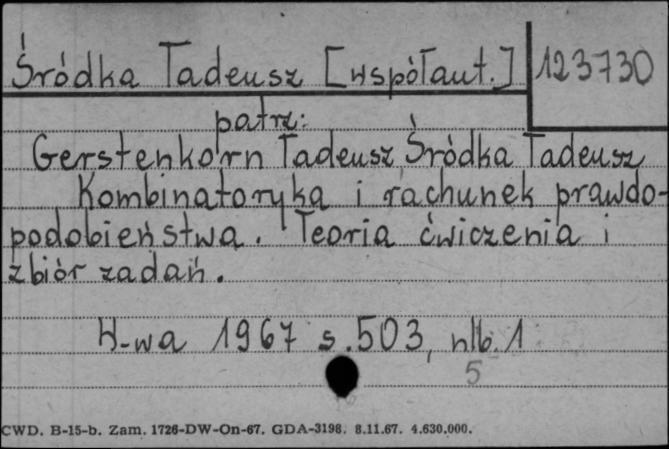 Śródka Tadeusz [współaut.] 123730
patrz:
Gerstenkorn Tadeusz Śródka Tadeusz
Kombinatoryka i rachunek prawdo-
podobieństwa. Teoria ćwiczenia i
zbiór zadań.
W-wa 1967 s.503, nlb.1
5
CWD. B-15-b. Zam. 1726-DW-On-67. GDA-3198. 8.11.67. 4.630.000.